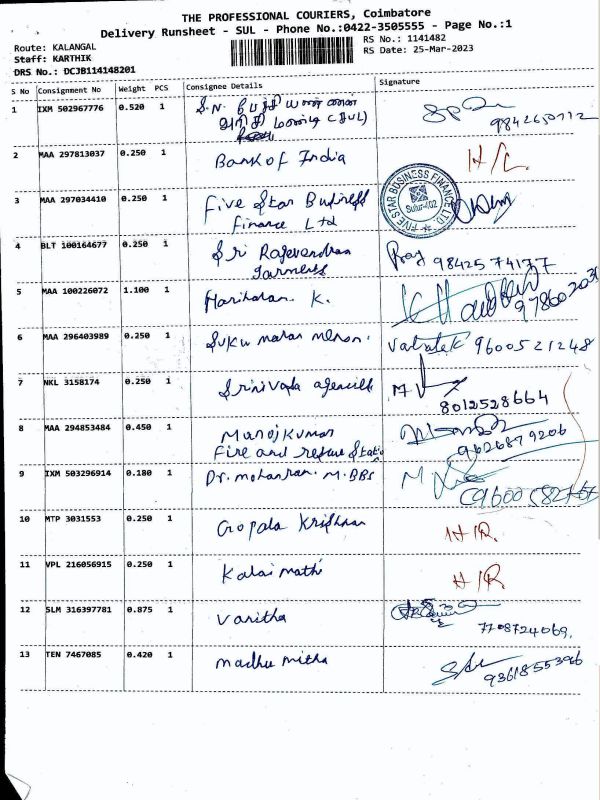 THE PROFESSIONAL COURIERS, Coimbatore
Delivery Runsheet - SUL - Phone No.:0422-3505555 - Page No.:1
Route: KALANGAL
RS No.: 1141482
Staff: KARTHIK
RS Date: 25-Mar-2023
DRS No.: DCJB114148201
S No Consignment No Weight PCS Consignee Details Signature
1 IXM 502967776 0.520 1 S.N.
அரிசி மண்டி (SUL)
9842650112
2 MAA 297813037 0.250 1 Bank of India H/L
3 MAA 297034410 0.250 1 Five Star Business
Finance Ltd
FIVE STAR BUSINESS FINANCE LTD.
Sulur-402
4 BLT 100164677 0.250 1 Sri Rajevendran
garments
98425 74177
5 MAA 100226072 1.100 1 Hariharan K.
6 MAA 296403989 0.250 1 Suku maran menon. 9600521248
7 NKL 3158174 0.250 1 Srinivasa agencies
8012528664
8 MAA 294853484 0.450 1 Manoj Kumar
Fire and rescue Station
9626879206
9 IXM 503296914 0.180 1 Dr. mohanran. M.BBS
10 MTP 3031553 0.250 1 Gopala Krishnan H/R.
11 VPL 216056915 0.250 1 Kalai mathi H/R
12 SLM 316397781 0.875 1 Vanitha
7708724069.
13 TEN 7467085 0.420 1 madhu mitha
9361855396